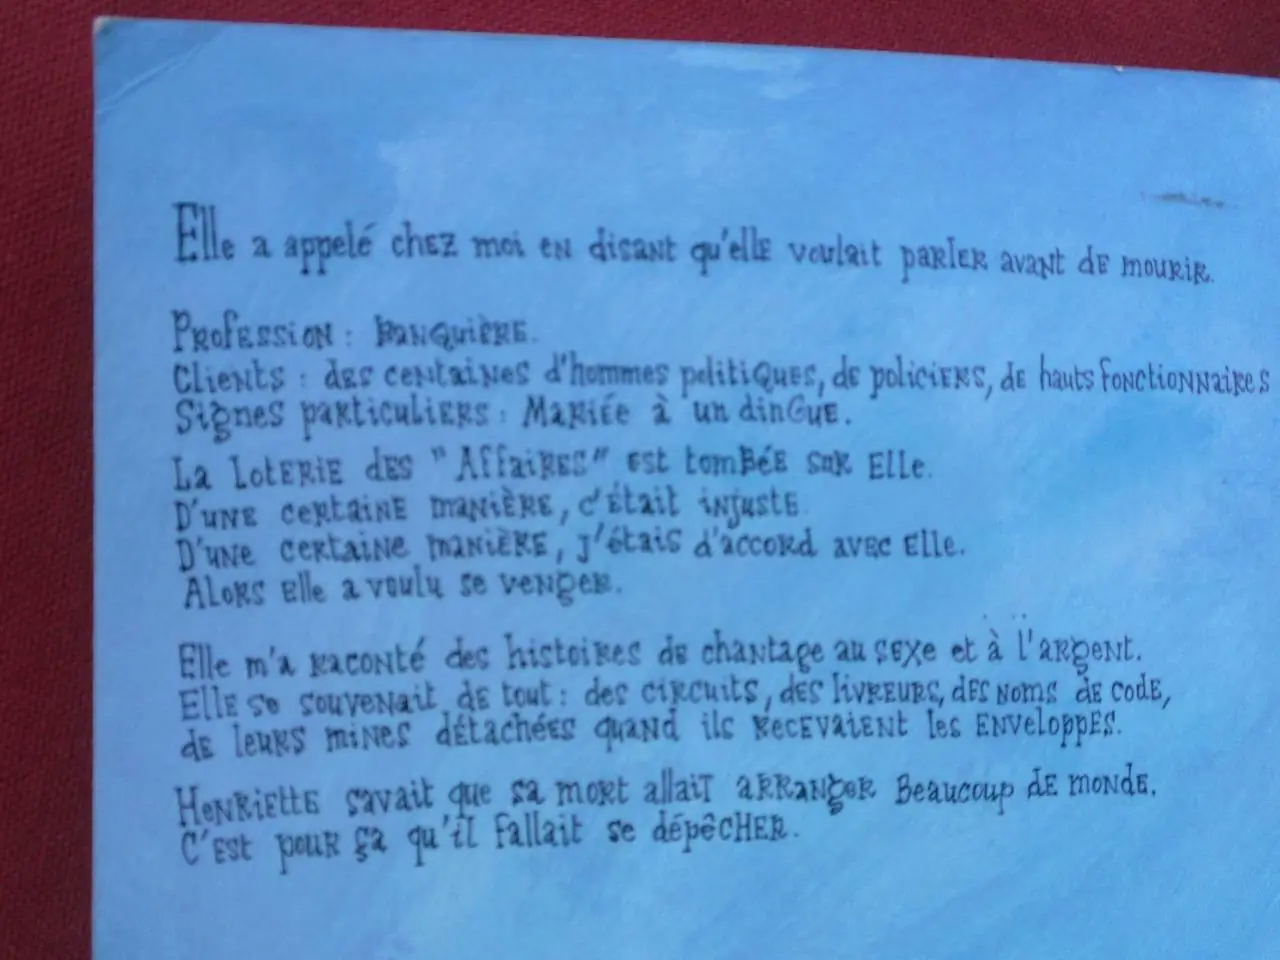 Elle a appelé chez moi en disant qu'elle voulait parler avant de mourir.
Profession : Banquière.
Clients : des centaines d'hommes politiques, de policiers, de hauts fonctionnaires
Signes particuliers : Mariée à un dingue.
La loterie des "Affaires" est tombée sur elle.
D'une certaine manière, c'était injuste.
D'une certaine manière, j'étais d'accord avec elle.
Alors elle a voulu se venger.
Elle m'a raconté des histoires de chantage au sexe et à l'argent.
Elle se souvenait de tout : des circuits, des livreurs, des noms de code,
de leurs mines détachées quand ils recevaient les enveloppes.
Henriette savait que sa mort allait arranger beaucoup de monde.
C'est pour ça qu'il fallait se dépêcher.